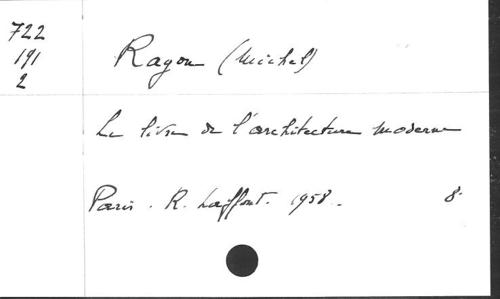 722
191
2
Ragon (Michel)
Le livre de l'architecture moderne
Paris. R. Laffont. 1958. 8°